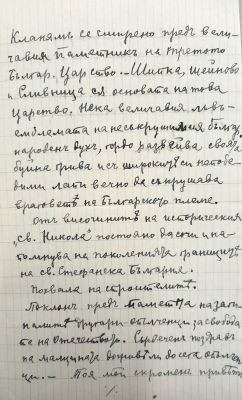 Кланямъ се смирено предъ вели-
чавия Паметникъ на третото
Българ. Царство. – Шипка, Шейново
и Сливница ся основата на това
Царство. Нека величавия лъвъ –
емблемата на несъкрушимия българ.
народенъ духъ, гордо развейва своята
буйна грива и съ широкитѣ си непобе-
дими лапи вечно да съкрушава
враговетѣ на Българското племе.
Отъ височинитѣ на историческия
„св. Никола" постояно да сочи и на-
помнува на поколенията границитѣ
на св. Стефанска България.
Похвала на строителитѣ.
Поклонъ предъ паметта на заги-
налитѣ другари-опълченци за свобода
та на отечеството. Сърдеченъ поздравъ
на малцината доживѣли до сега опълчен
ци. – Тоя мой скроменъ приветъ